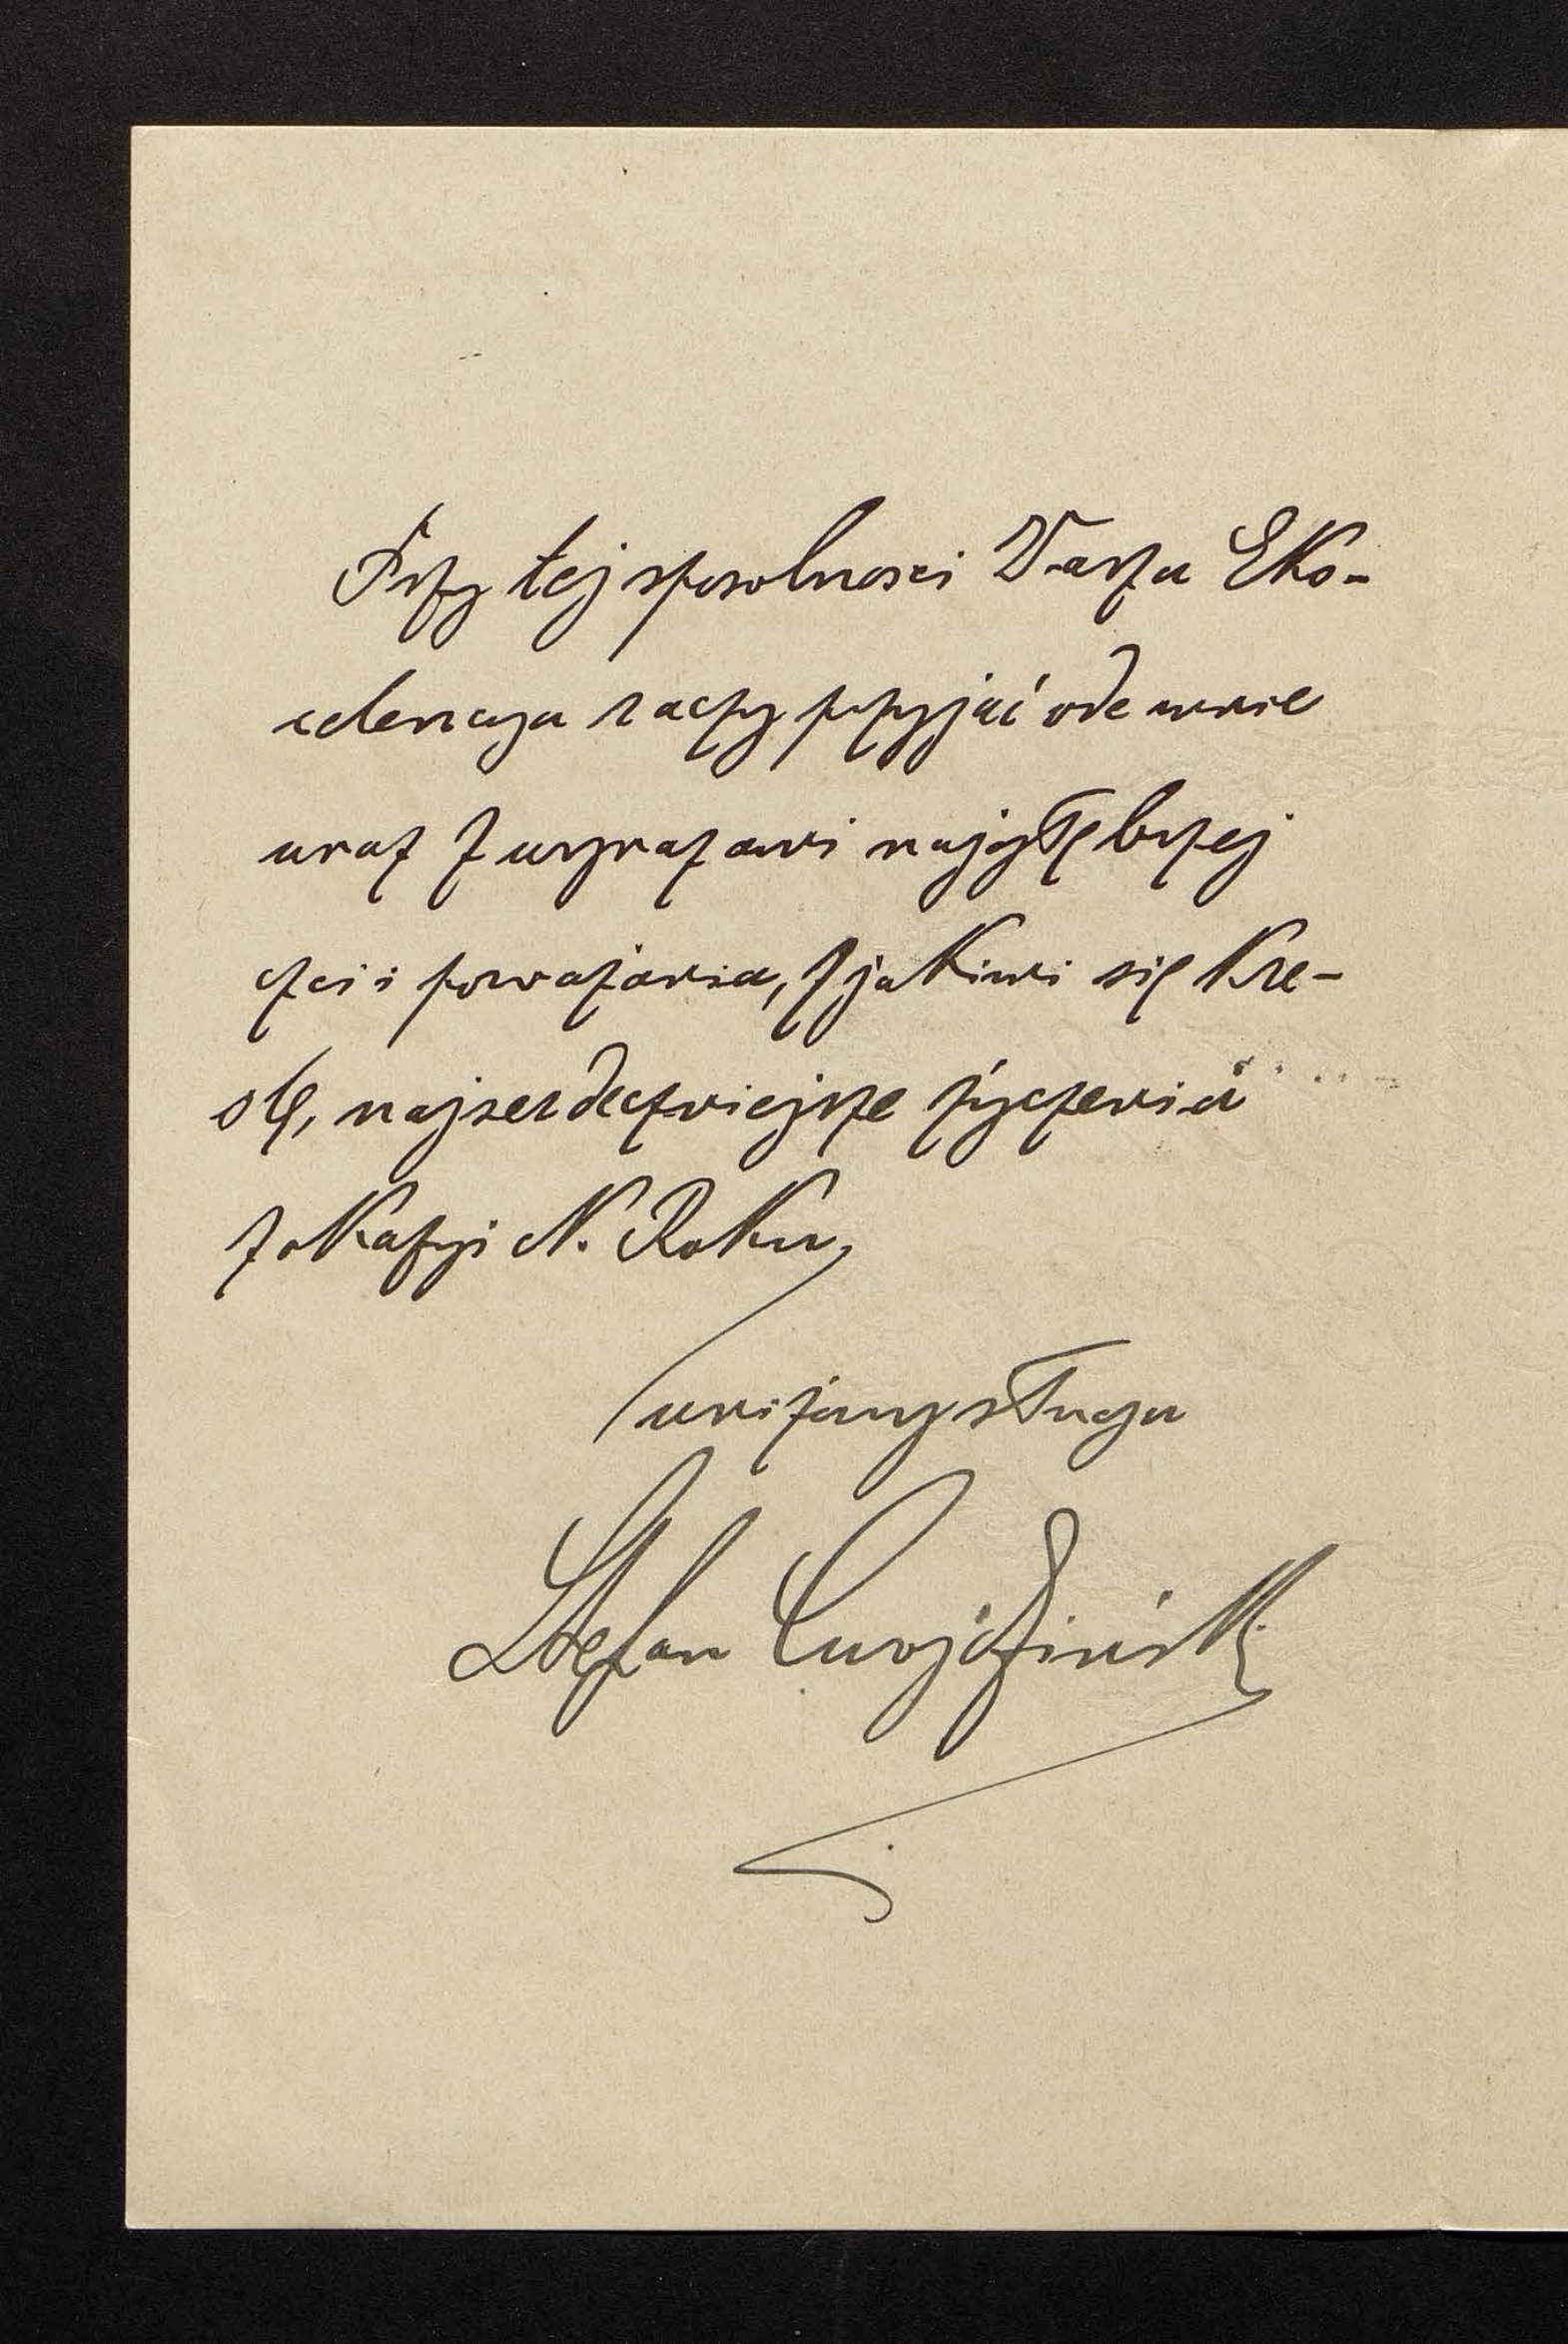 Przy tej sposobności Wasza Eks-
celencya raczy przyjąć ode mnie
wraz z wyrazami najgłębszej
czci i poważania, z jakimi się kre-
ślę, najserdeczniejsze życzenia
z okazyi N. Roku,
uniżony sługa
Stefan Cwojdziński